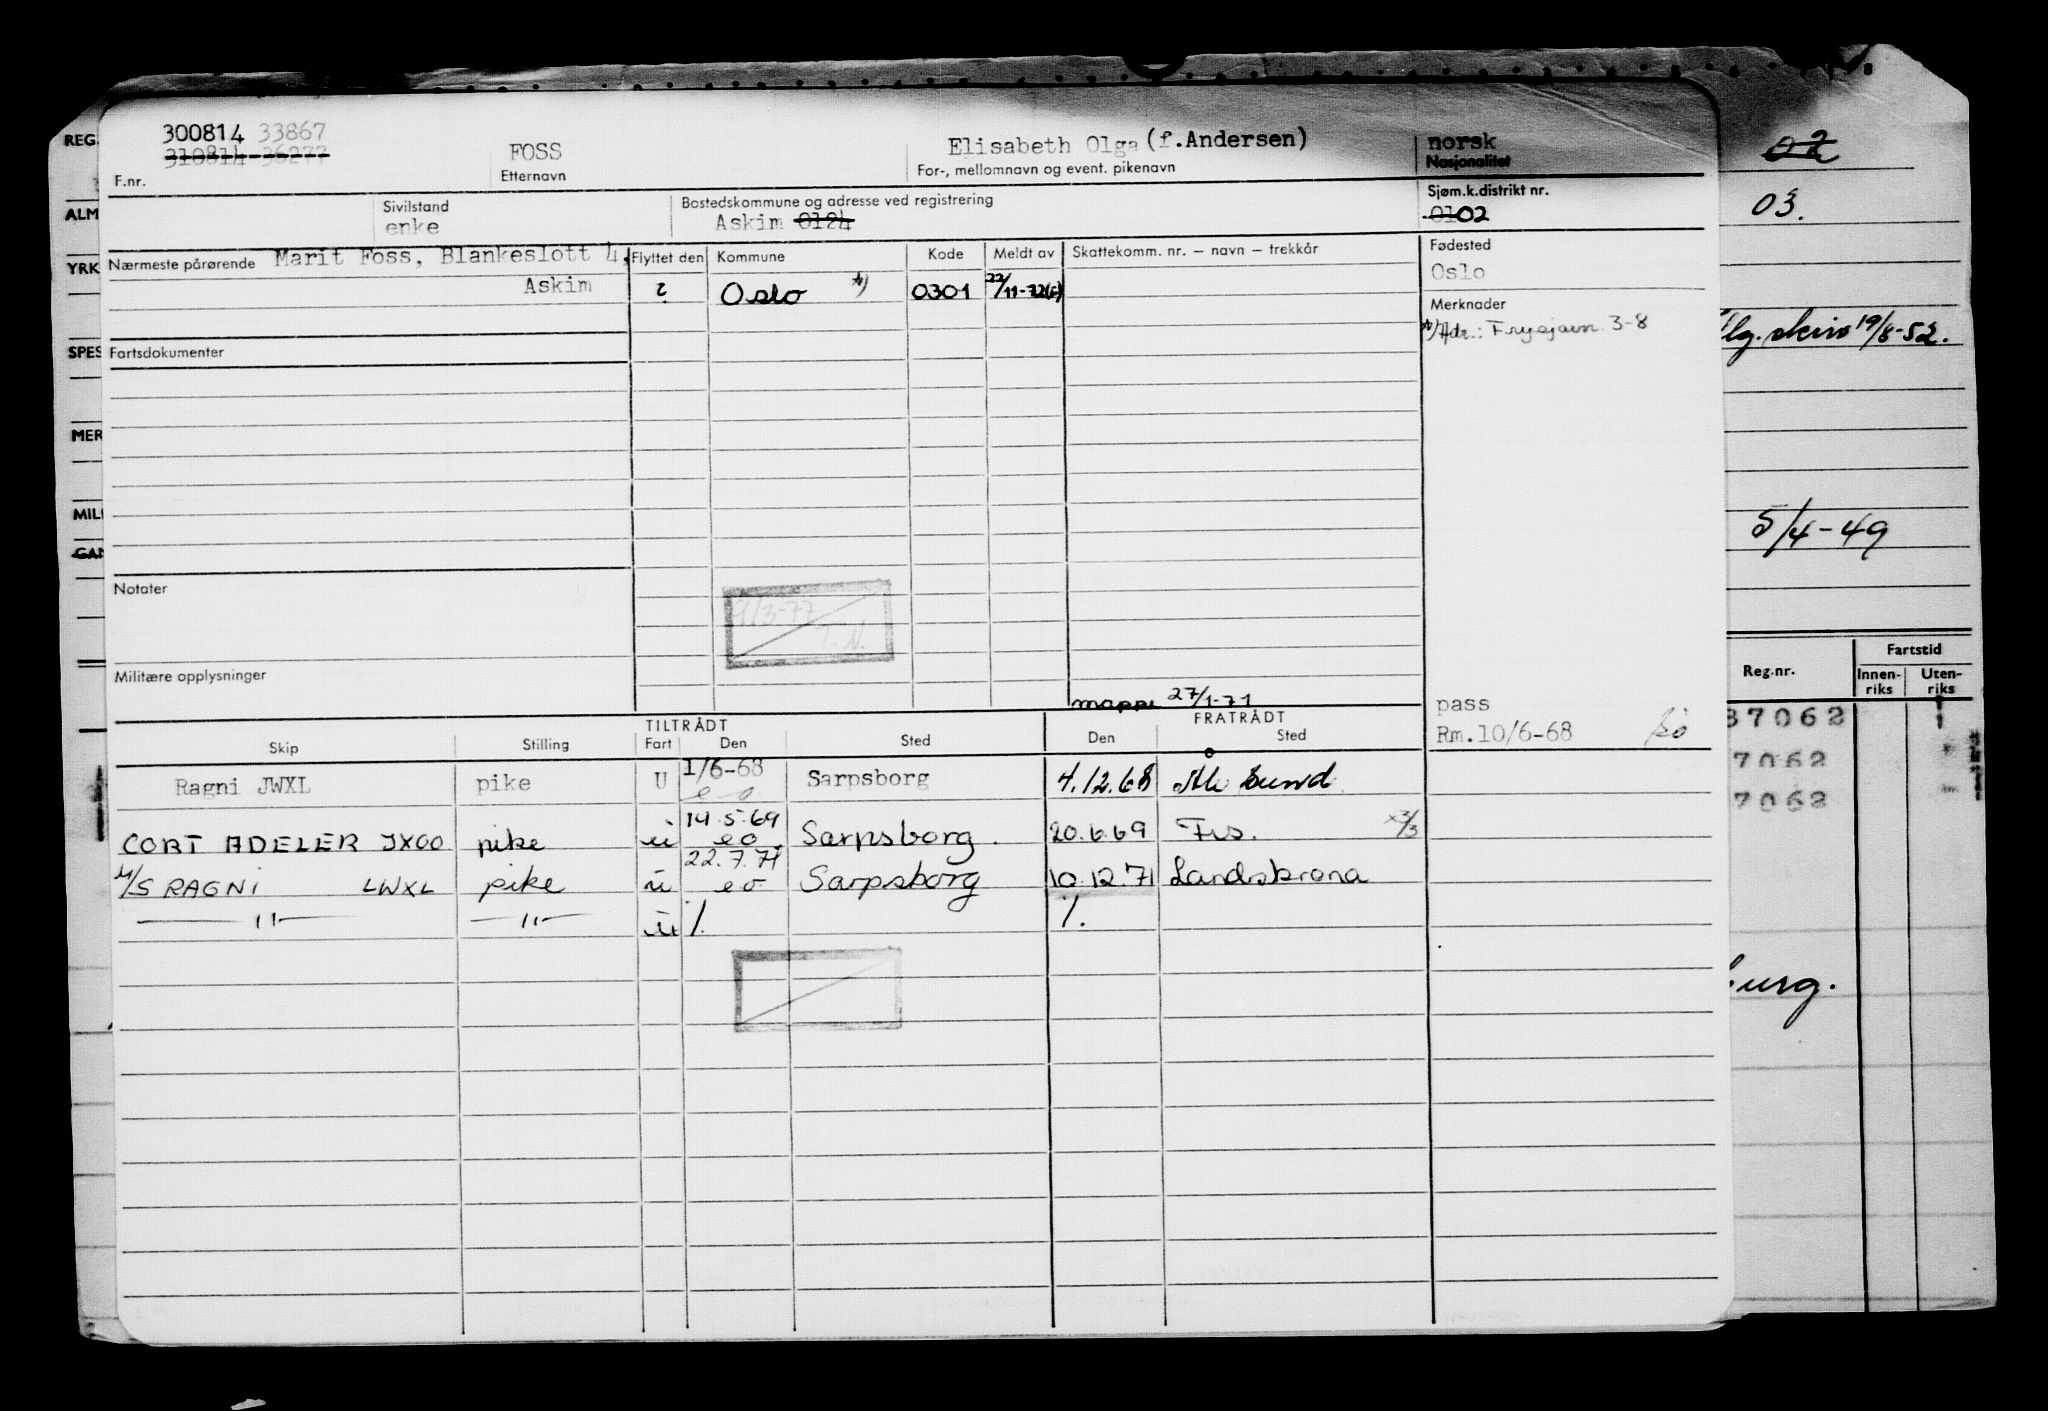 300814 33867
310814 36277
F.nr.
FOSS
Etternavn
Elisabeth Olga (f.Andersen)
For-, mellomnavn og event. pikenavn
norsk
Nasjonalitet
Sivilstand
enke
Bostedskommune og adresse ved registrering
Askim 0124
Sjøm.k.distrikt nr.
01 02
Nærmeste pårørende Marit Foss, Blankeslott 4,
Askim
Flyttet den Kommune Kode Meldt av Skattekomm. nr. — navn — trekkår
? Oslo *) 0301 22/11-72(F)
Fødested
Oslo
Merknader
*) Adr.: Frysjavn. 3-8
Fartsdokumenter
Notater
9/3-77
T.M.
Militære opplysninger
mappe 27/1-71
pass
Rm.10/6-68
TILTRÅDT FRATRÅDT
Skip Stilling Fart Den Sted Den Sted
Ragni JWXL pike U 1/6-68 Sarpsborg 4.12.68 Ålesund
e o
CORT ADELER JXOO pike u 14.5.69 eo Sarpsborg. 20.6.69 Frs. x3/3
M/S RAGNI LWXL pike u 22.7.71 eo Sarpsborg 10.12.71 Landskrona
—"— —"— u %. %.
REG.
ALM
YRK
SPES
MER
MILI
GAN
02
03.
skriv 19/8-52.
5/4-49
Reg.nr. Fartstid
Innen-riks Uten-riks
37062
7062
7062
urg.